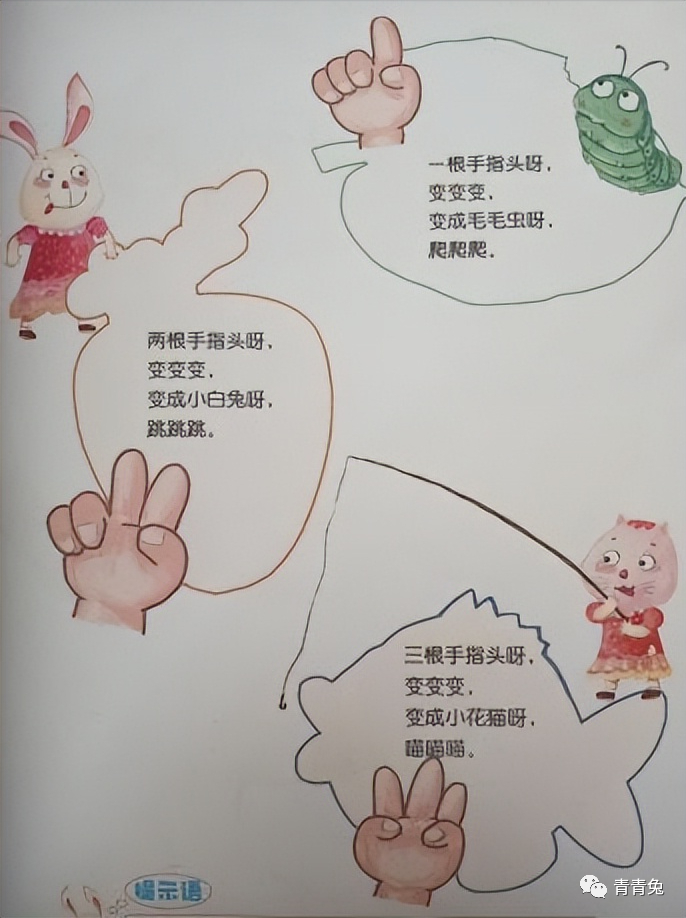 一根手指头呀，
变变变，
变成毛毛虫呀，
爬爬爬。
两根手指头呀，
变变变，
变成小白兔呀，
跳跳跳。
三根手指头呀，
变变变，
变成小花猫呀，
喵喵喵。
提示语
青青兔